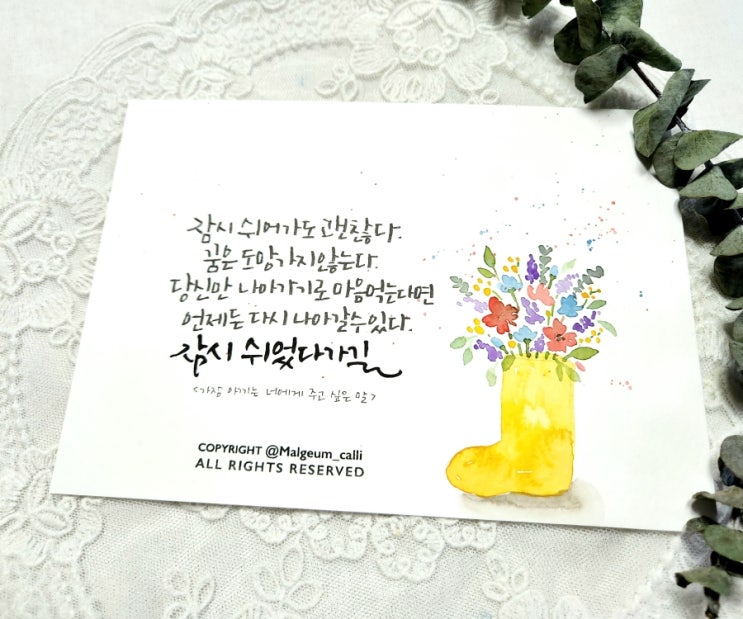 잠시 쉬어가도 괜찮다.
꿈은 도망가지 않는다.
당신만 나아가기로 마음먹는다면
언제든 다시 나아갈 수 있다.
잠시 쉬었다가길
<가장 아끼는 너에게 주고 싶은 말>
COPYRIGHT @Malgeum_calli
ALL RIGHTS RESERVED